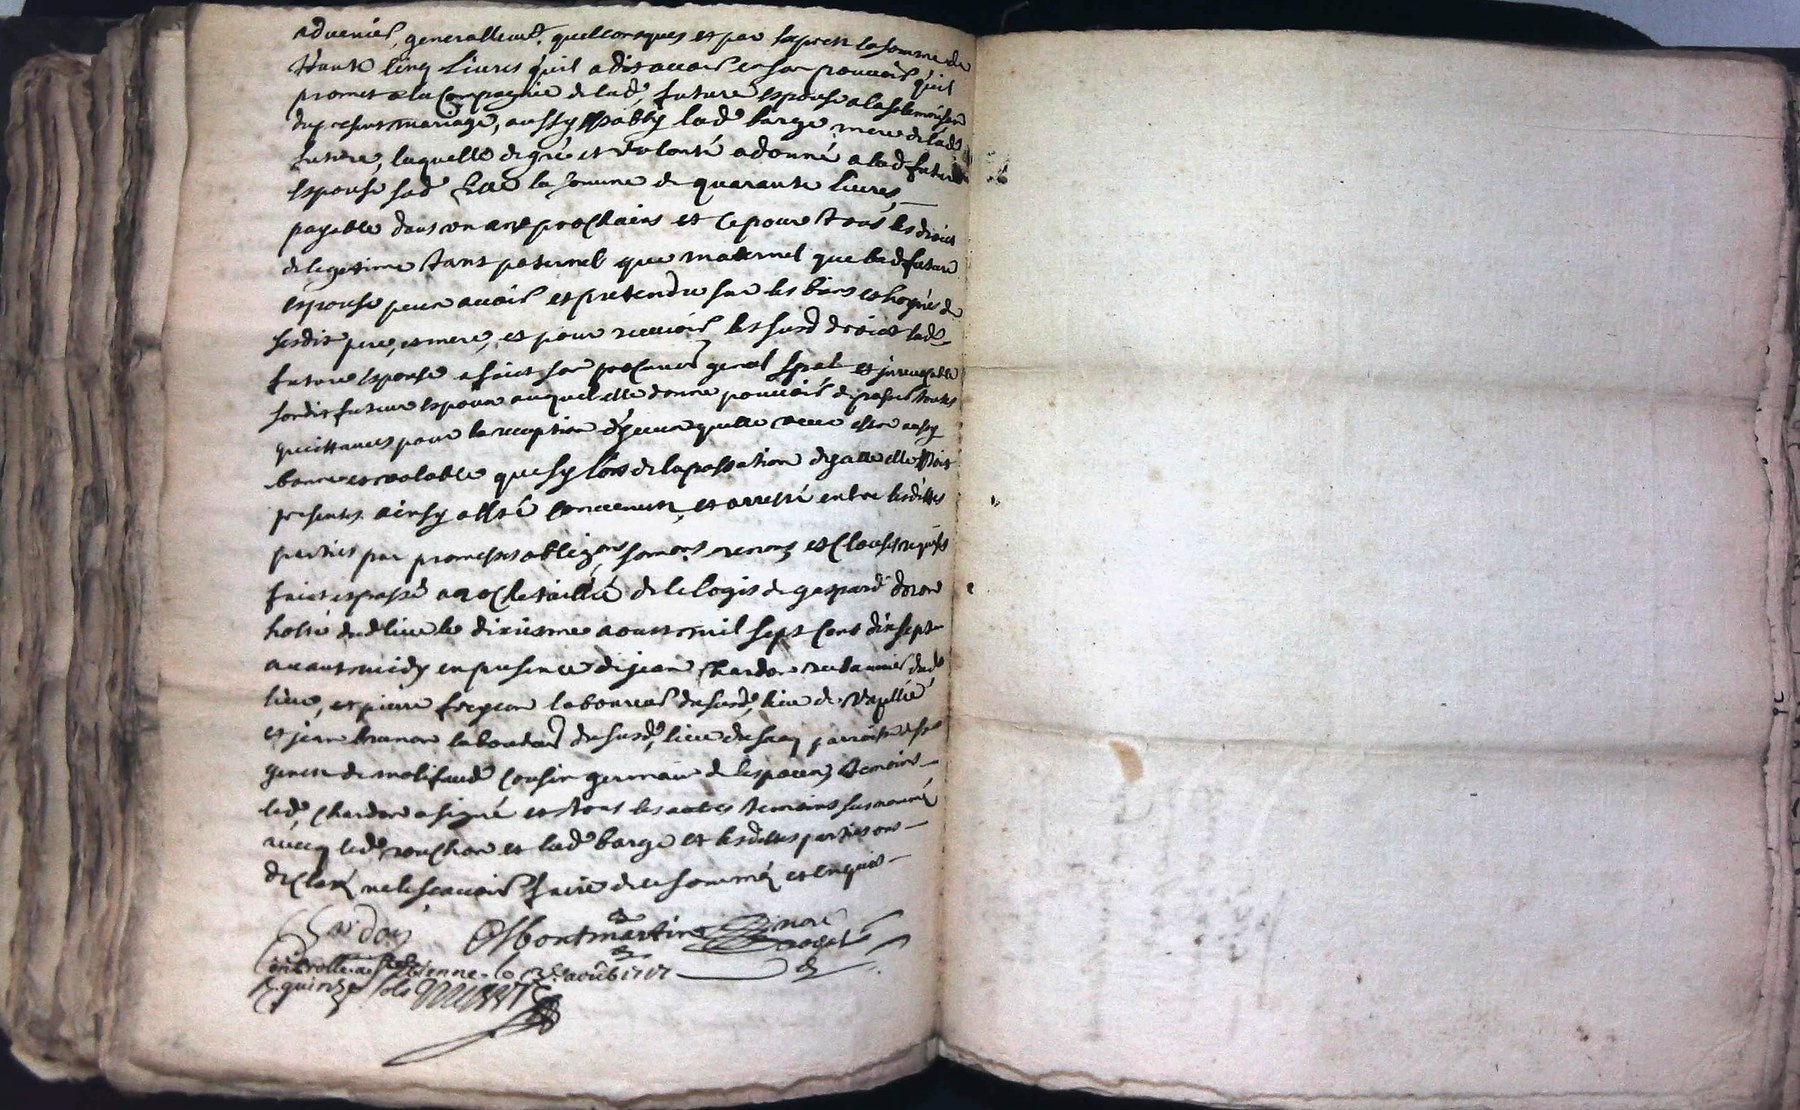 advenir, generallem^t. quelconques et par exprest la somme de
trante cinq livres qu'il a dit avoir en son pouvoir qu'il
promet a la Compagnie de lad^e. future espouse a la solemni
du present mariage, aussy lad^e barge mere de lad^e
future, laquelle de gré et vollonté a donné a lad^e future
espouse sad^e fille la somme de quarante livres
payable dans un an prochains et ce pour tous les droits
de legitime tant paternel que maternel que lad^e future
espouse peut avoir et pretendre sur les biens et hoyries de
sesdit pere, et mere, et pour recevoir les susd^s droicts lad^e
future espouse a faict son procureur general special et irrevocable
sondit futur espoux auquel elle donne pouvoir de passer toutes
quittances pour la reception d'yceux qu'elle veut estre aussy
bonne et valable que sy lors de la passation d'ycelle elle estoit
presente. ainsy a esté convenu, et arresté entre lesdittes
parties par promesses oblig^ons soum^ons renon^s et clauses requises
faict et passé a rochetaillée de le logis de gaspard doron
hoste dud^ lieu le dixiesme aoust mil sept cent dix sept
avant midy en presence de jean Chardon dud^
lieu, et pierre laboureur du susd^ lieu de
et jean brunon laboureur du susd^ lieu parroisse de st
genest de malifaud cousin germain de l'espoux temoins
led^ Chardon a signé et tous les autres temoins susnommés
avecq led^ et lad^e barge et lesdittes parties ont
declaré ne le scavoir faire de ce sommés et enquis
Chardon Montmartin no^re
royal
Controlle a st Estienne le aoust 1717
R. quinze sols